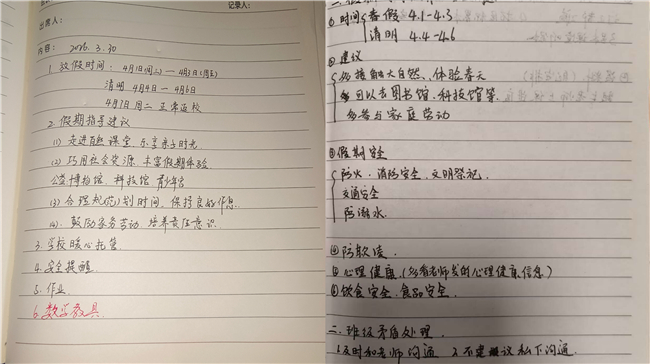 记录人:
出席人:
内容: 2026.3.30
1. 放假时间: 4月1日(周三)——4月3日(周五)
清明 4月4日——4月6日
4月7日 周二 正常返校
2. 假期指导建议
(1) 走进自然课堂, 乐享亲子时光
(2) 巧用社会资源, 丰富假期体验
公益博物馆, 科技馆, 青少年宫
(3) 合理规(范)划时间, 保持良好作息.
(4). 鼓励家务劳动, 培养责任意识.
3. 学校暖心托管.
4. 安全提醒.
5. 作业
6. 数学教具.
① 时间 春假 4.1-4.3
清明 4.4-4.6
② 建议
多接触大自然、体验春天
可以去图书馆、科技馆等.
多参与家庭劳动
③ 假期安全
防火、消防安全, 文明祭祀.
交通安全
防溺水.
④ 防欺凌.
⑤ 心理健康 (多看老师发的心理健康信息)
⑥ 饮食安全, 食品安全.
二. 班级矛盾处理.
1. 及时和老师沟通 2. 不建议私下沟通.